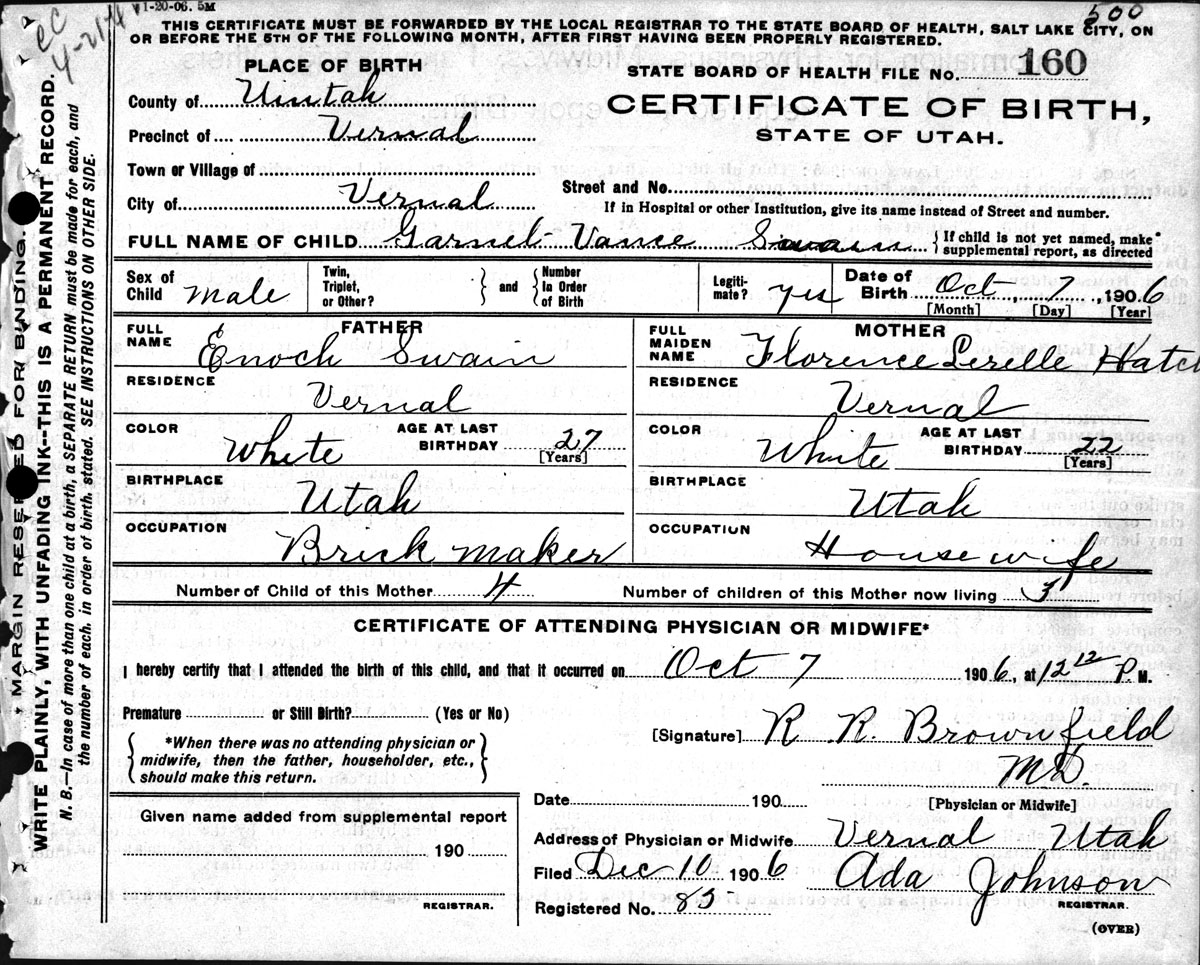 1-20-06. 5M
500
THIS CERTIFICATE MUST BE FORWARDED BY THE LOCAL REGISTRAR TO THE STATE BOARD OF HEALTH, SALT LAKE CITY, ON
OR BEFORE THE 5TH OF THE FOLLOWING MONTH, AFTER FIRST HAVING BEEN PROPERLY REGISTERED.
PLACE OF BIRTH
STATE BOARD OF HEALTH FILE No. 160
County of Uintah
CERTIFICATE OF BIRTH,
Precinct of Vernal
STATE OF UTAH.
Town or Village of
City of Vernal
Street and No.
If in Hospital or other Institution, give its name instead of Street and number.
FULL NAME OF CHILD Garnel Vance Swain { If child is not yet named, make supplemental report, as directed
Sex of Child Male Twin, Triplet, or Other? } and { Number In Order of Birth Legiti-mate? yes Date of Birth Oct 7, 1906
[Month] [Day] [Year]
FATHER
MOTHER
FULL NAME Enoch Swain
FULL MAIDEN NAME Florence Lerelle Hatch
RESIDENCE Vernal
RESIDENCE Vernal
COLOR White AGE AT LAST BIRTHDAY 27 [Years]
COLOR White AGE AT LAST BIRTHDAY 22 [Years]
BIRTHPLACE Utah
BIRTHPLACE Utah
OCCUPATION Brick maker
OCCUPATION Housewife
Number of Child of this Mother 4 Number of children of this Mother now living 3
CERTIFICATE OF ATTENDING PHYSICIAN OR MIDWIFE*
I hereby certify that I attended the birth of this child, and that it occurred on Oct 7 1906, at 12 12 P. M.
Premature or Still Birth? (Yes or No)
[Signature] R. R. Brownfield
MD.
[Physician or Midwife]
{ *When there was no attending physician or
midwife, then the father, householder, etc.,
should make this return. }
Given name added from supplemental report
190
REGISTRAR.
Date 190
Address of Physician or Midwife Vernal Utah
Filed Dec 10 1906 Ada Johnson
REGISTRAR.
Registered No. 85
(OVER)
MARGIN RESERVED FOR BINDING.
WRITE PLAINLY, WITH UNFADING INK--THIS IS A PERMANENT RECORD.
N. B.—In case of more than one child at a birth, a SEPARATE RETURN must be made for each, and
the number of each, in order of birth, stated. SEE INSTRUCTIONS ON OTHER SIDE.